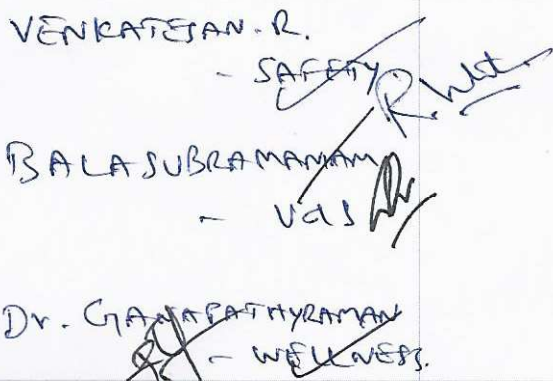 VENKATESAN. R.
- SAFETY.
BALASUBRAMANIAM
- V&S
Dr. GANAPATHYRAMAN
- WELLNESS.